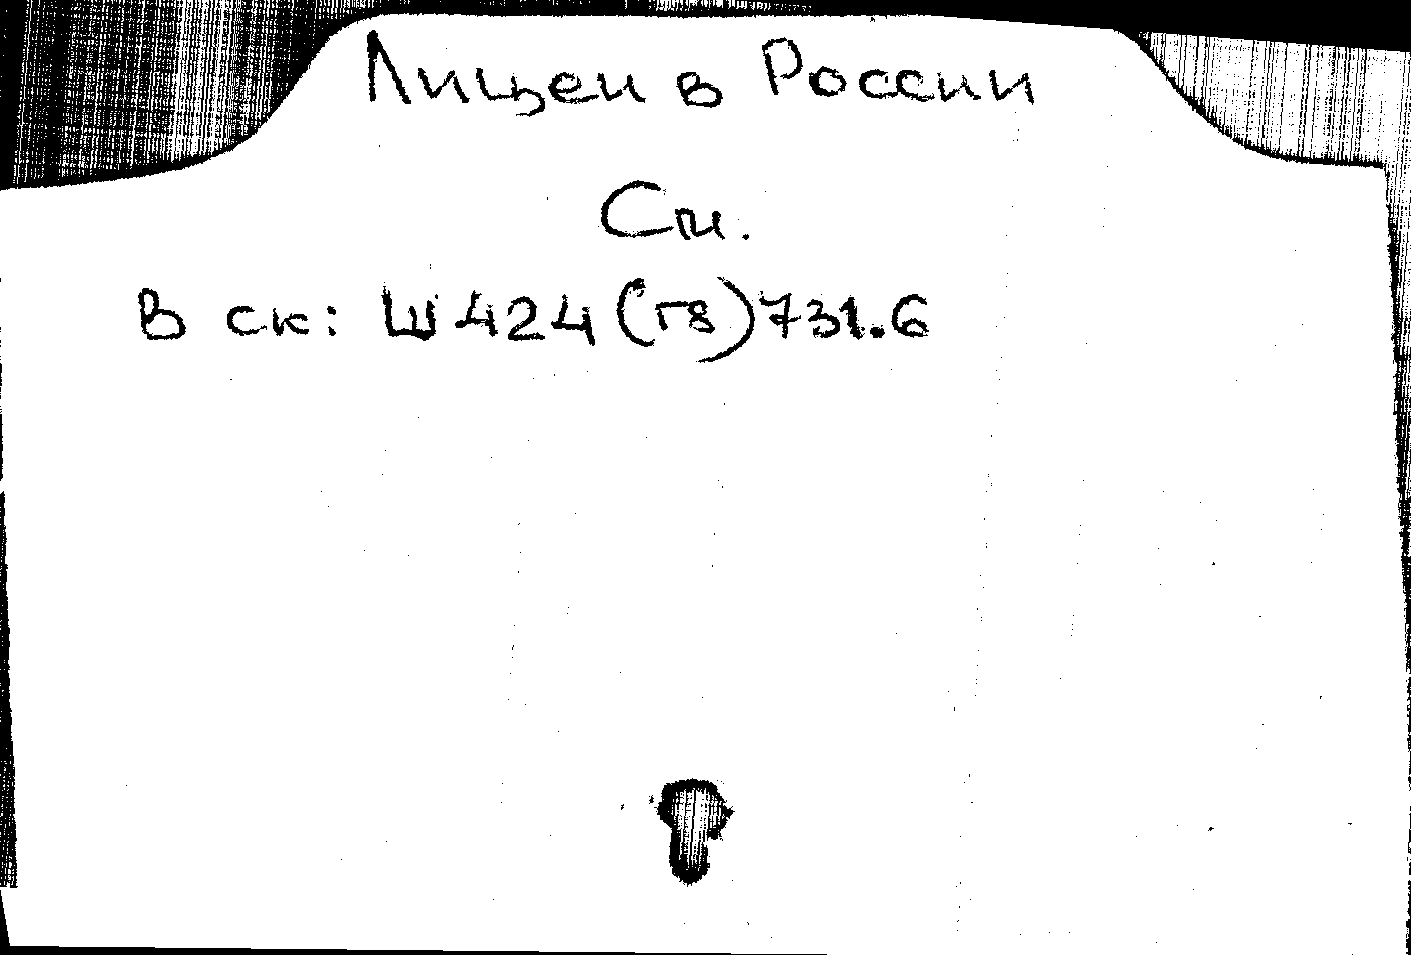 Лицеи в России
См.
В ск: Ш424(г8)731.6